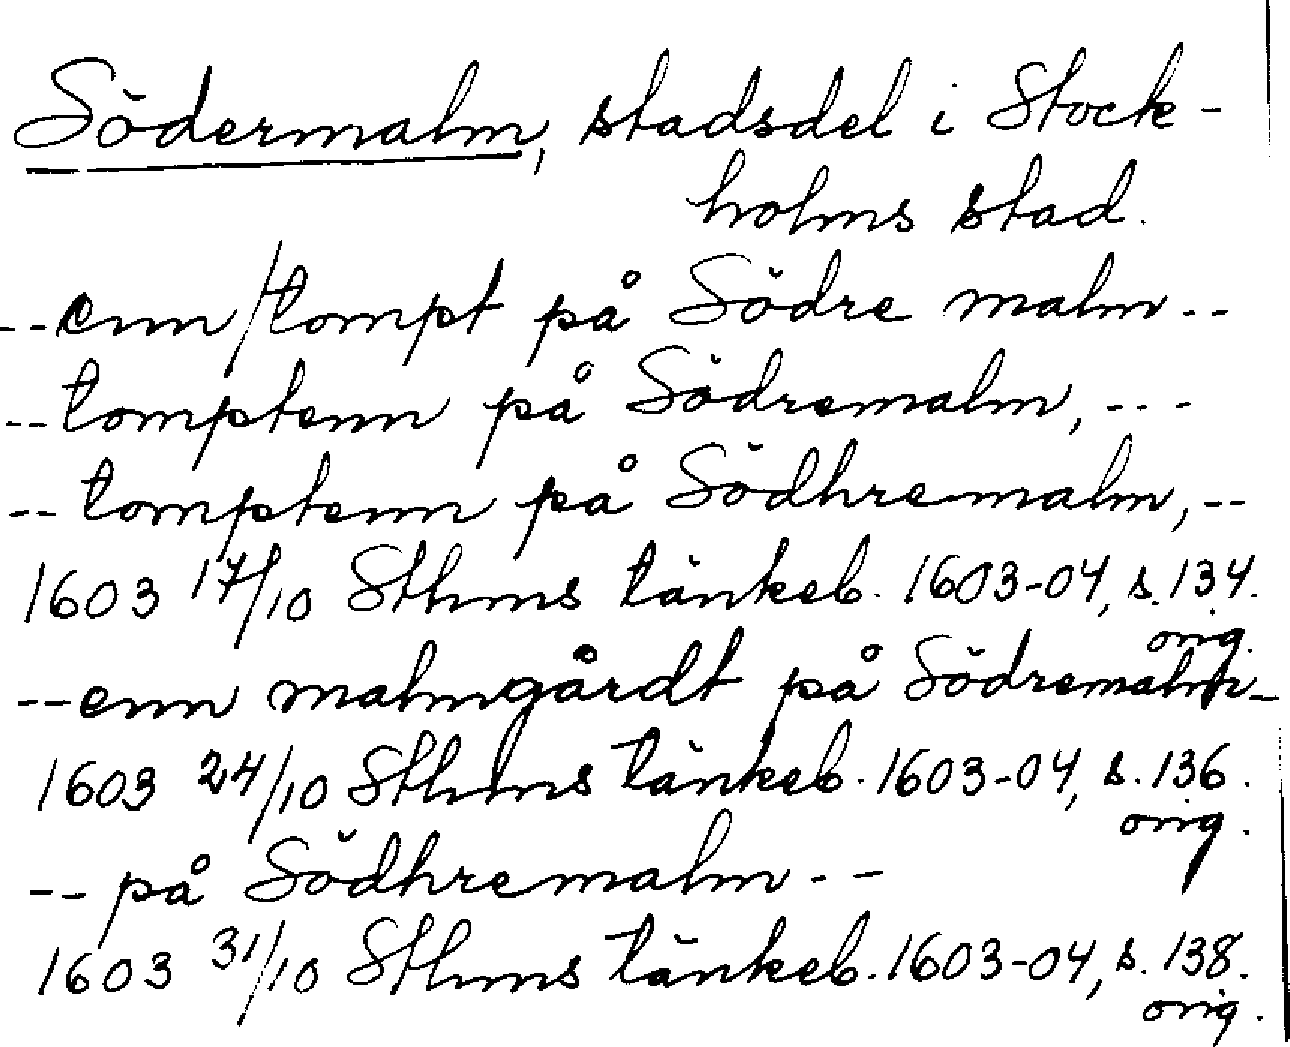 Södermalm, stadsdel i Stock-
holms stad.
--enn/tompt på Södre malm--
--tomptenn på Södremalm,---
--tomptenn på Södhremalm,--
1603 17/10 Sthms tänkeb. 1603-04, s. 134.
orig.
--enn malmgårdt på Södremalm-
1603 24/10 Sthms tänkeb. 1603-04, s. 136.
orig.
-- på Södhremalm --
1603 31/10 Sthms tänkeb. 1603-04, s. 138.
orig.